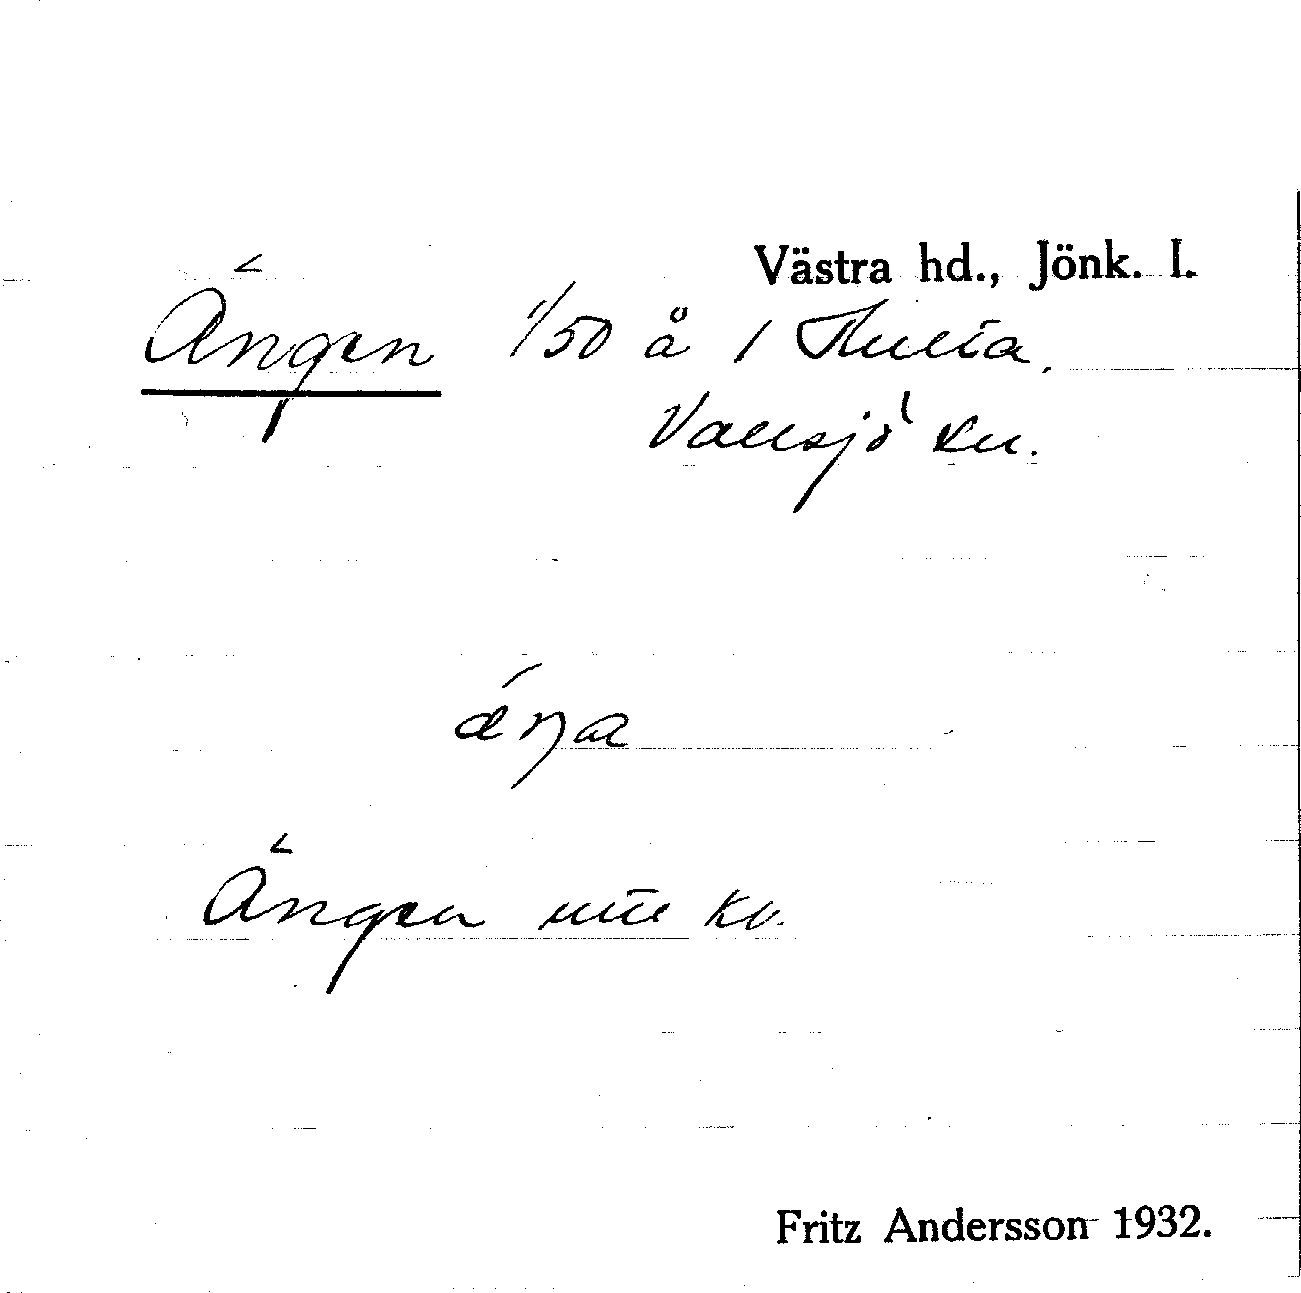 Västra hd., Jönk. l.
Ängen 1/50 å 1 Hulta.
Vallsjö sn.
áŋa
Ängen kv.
Fritz Andersson 1932.